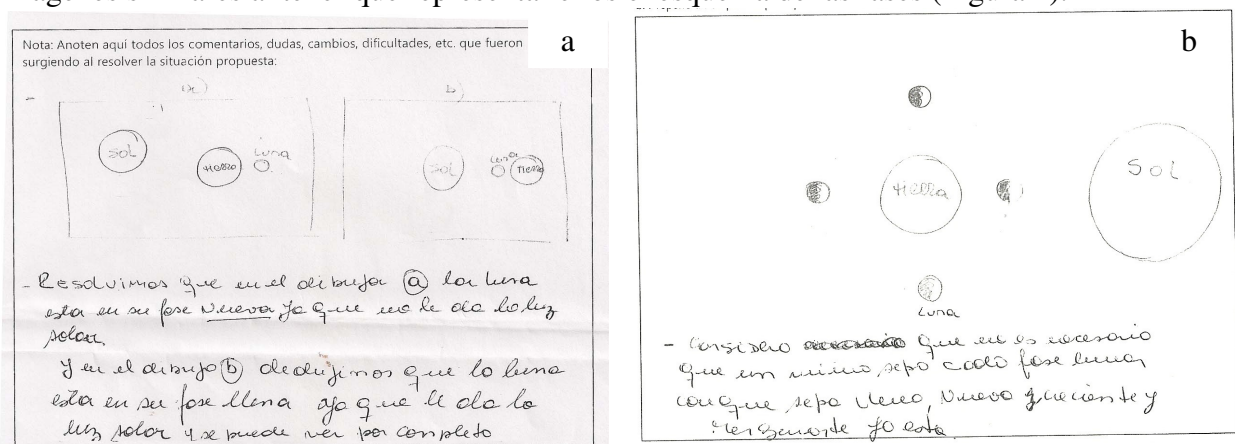 Nota: Anoten aquí todos los comentarios, dudas, cambios, dificultades, etc. que fueron
surgiendo al resolver la situación propuesta:
a
a)
b)
sol
tierra
Luna
sol
Luna
Tierra
- Resolvimos que en el dibujo ⓐ la luna
esta en su fase Nueva ya que no le da la luz
solar.
Y en el dibujo ⓑ dedujimos que la luna
esta en su fase llena ya que le da la
luz solar y se puede ver por completo
b
tierra
SOL
Luna
- Considero que no es necesario
que un niño, sepa cada fase lunar,
con que sepa llena, Nueva creciente y
menguante ya esta